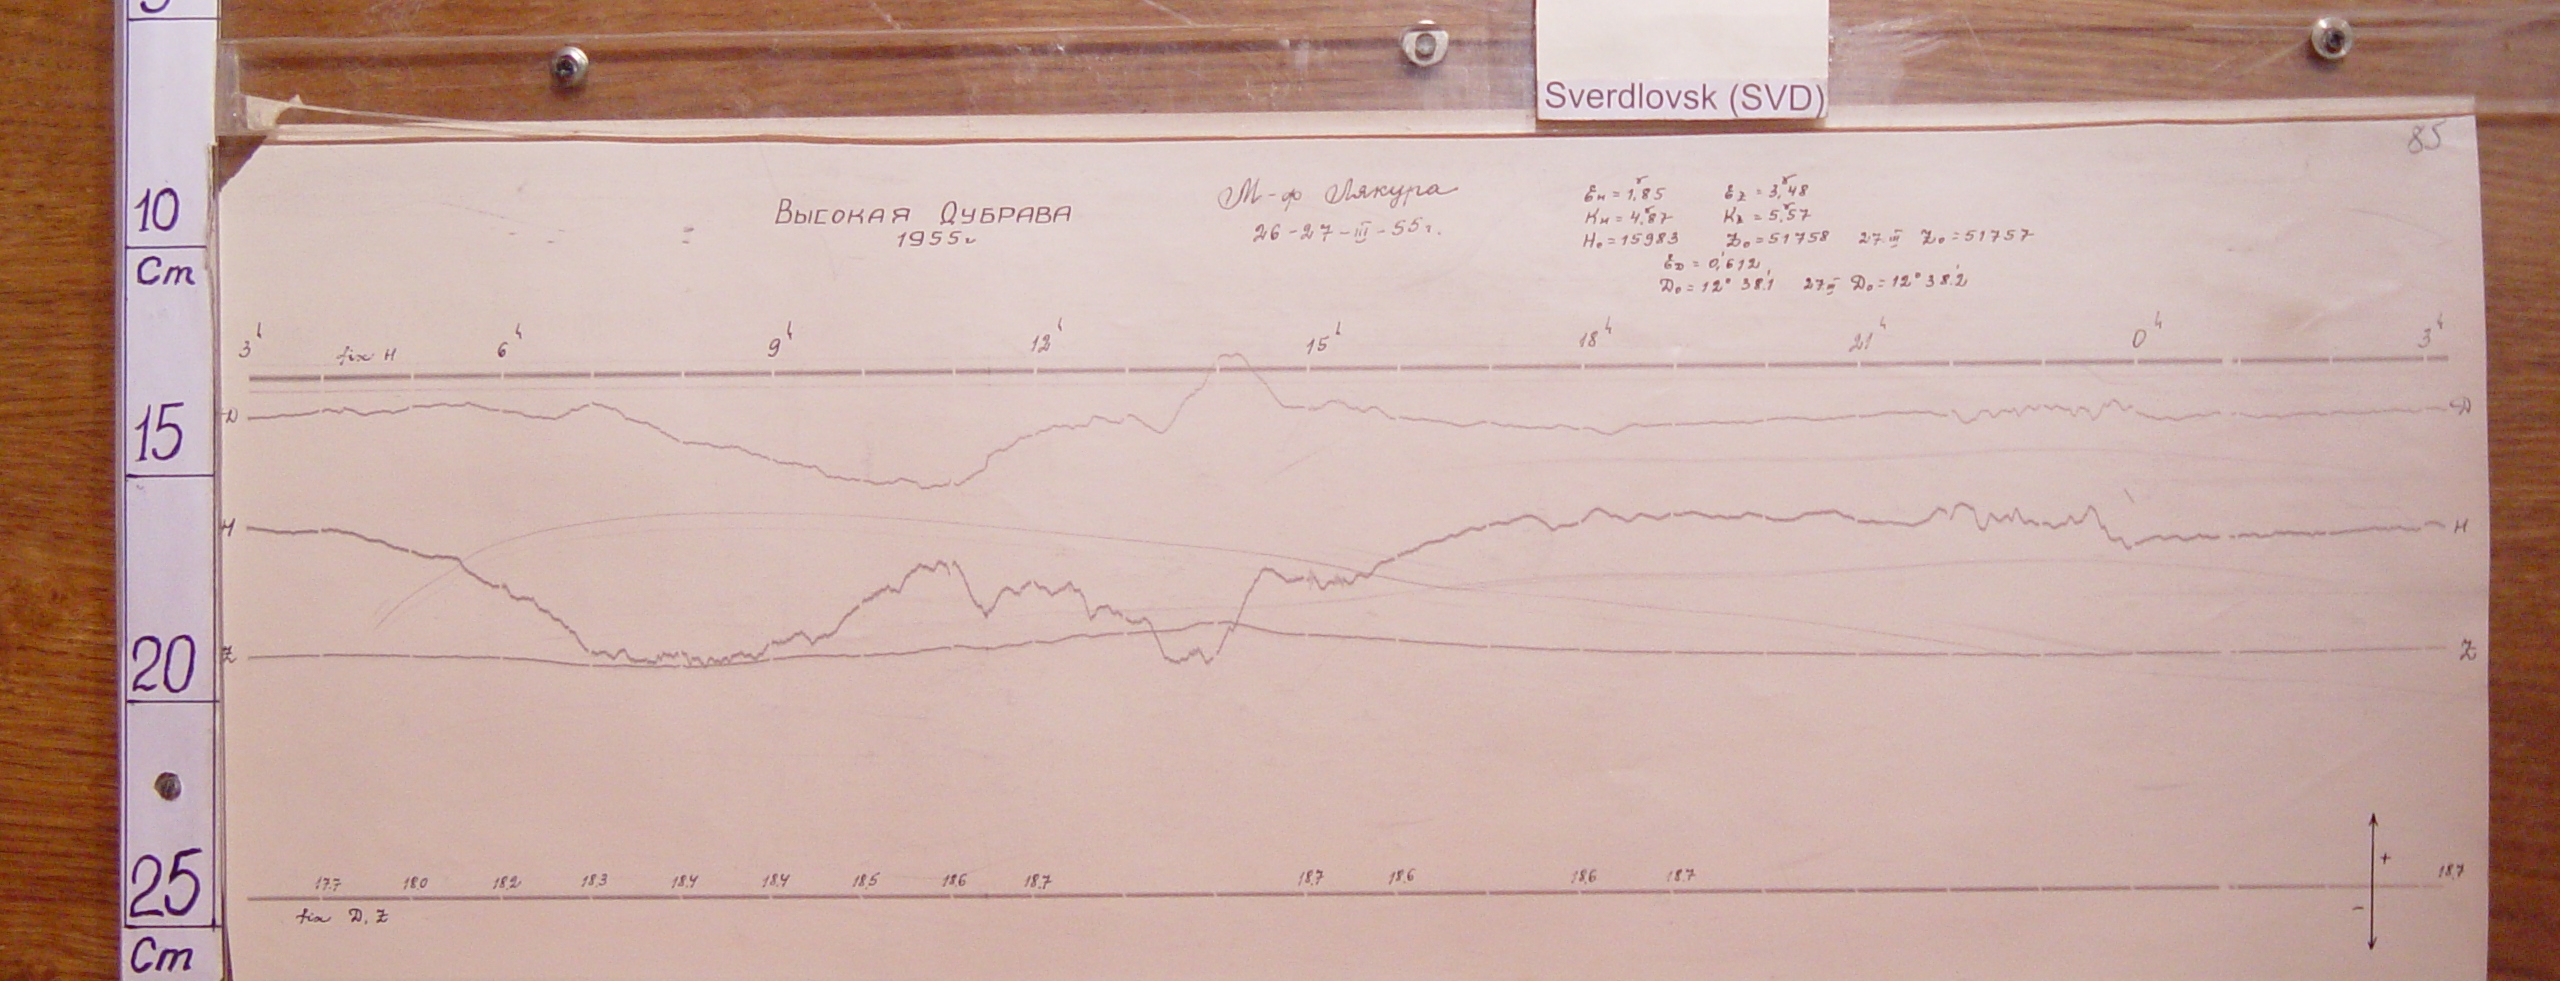 Sverdlovsk (SVD)
85
10
Cm
15
20
25
Cm
Высокая Дубрава
1955г
М-ф Лякура
26-27-III-55г.
Eн = 1,85 Ez = 3,48
Kн = 4,87 Kz = 5,57
H₀ = 15983 Z₀ = 51758 27 III Z₀ = 51757
ED = 0,612
D₀ = 12° 38.1 27 III D₀ = 12° 38.2
3ʰ fix H 6ʰ 9ʰ 12ʰ 15ʰ 18ʰ 21ʰ 0ʰ 3ʰ
D D
H H
Z Z
17.7 18.0 18.2 18.3 18.4 18.4 18.5 18.6 18.7 18.7 18.6 18.6 18.7 18.7
fix D, Z
+
-